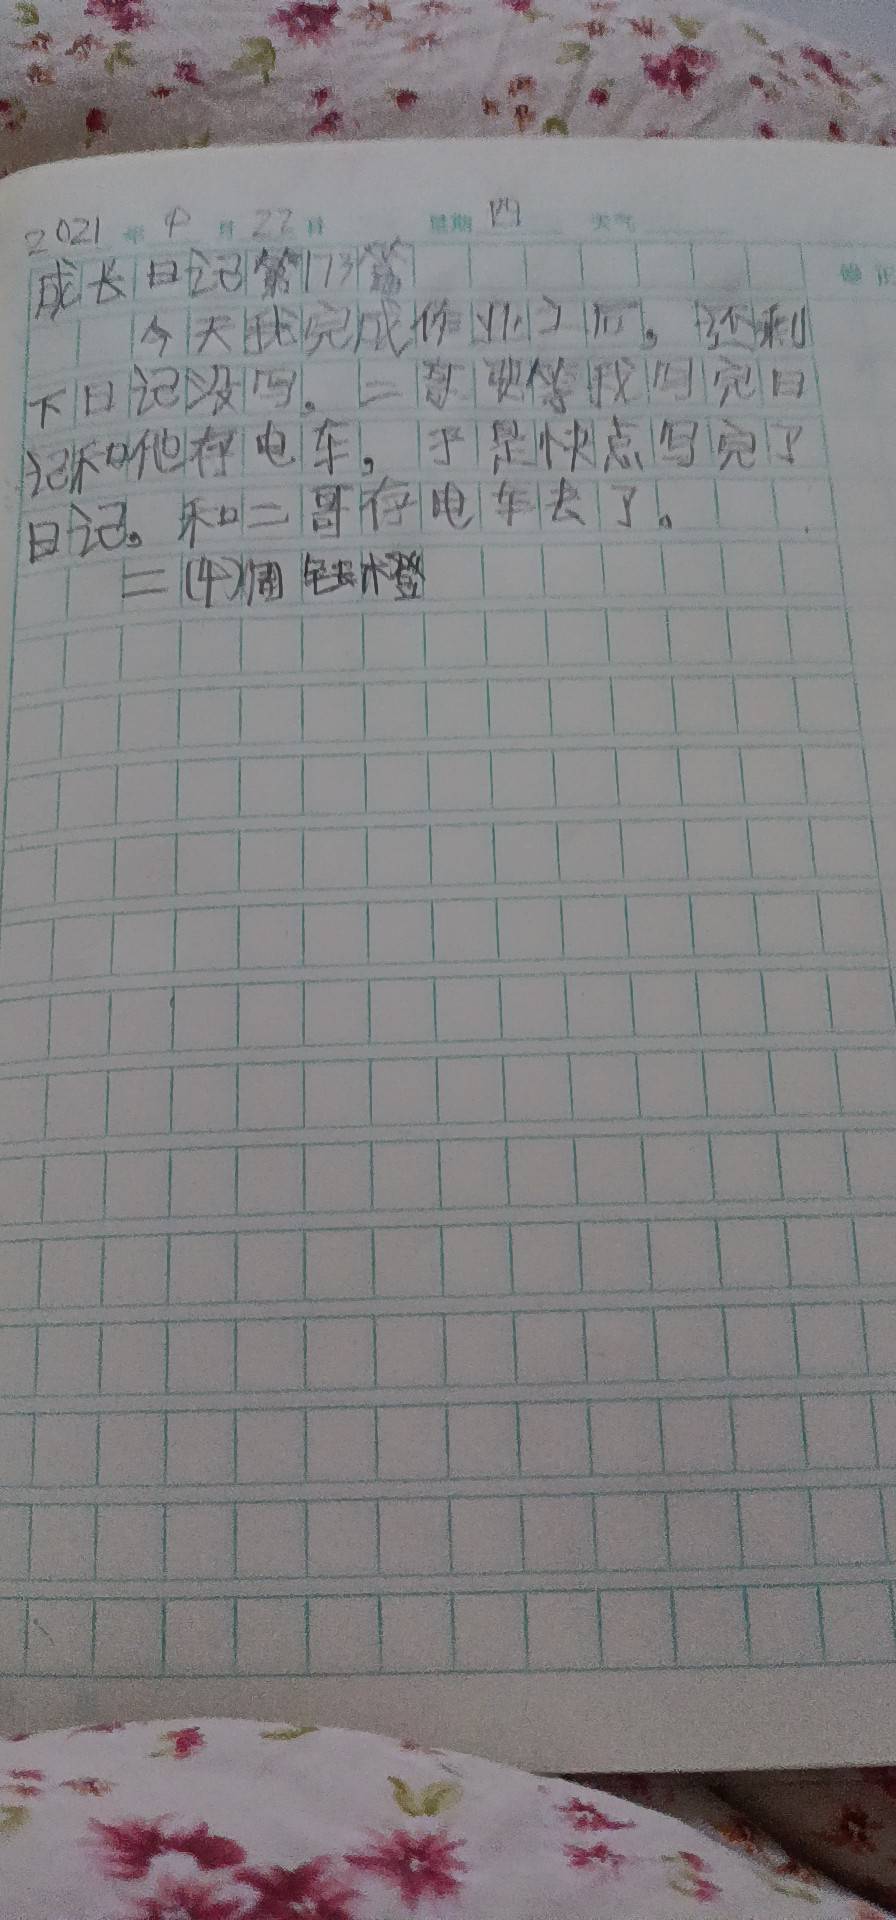 2021年4月22日 星期四 天气
成长日记第173篇
今天我完成作业之后。还剩
下日记没写。二哥要等我写完日
记和他存电车，于是快点写完了
日记。和二哥存电车去了。
二(4)周